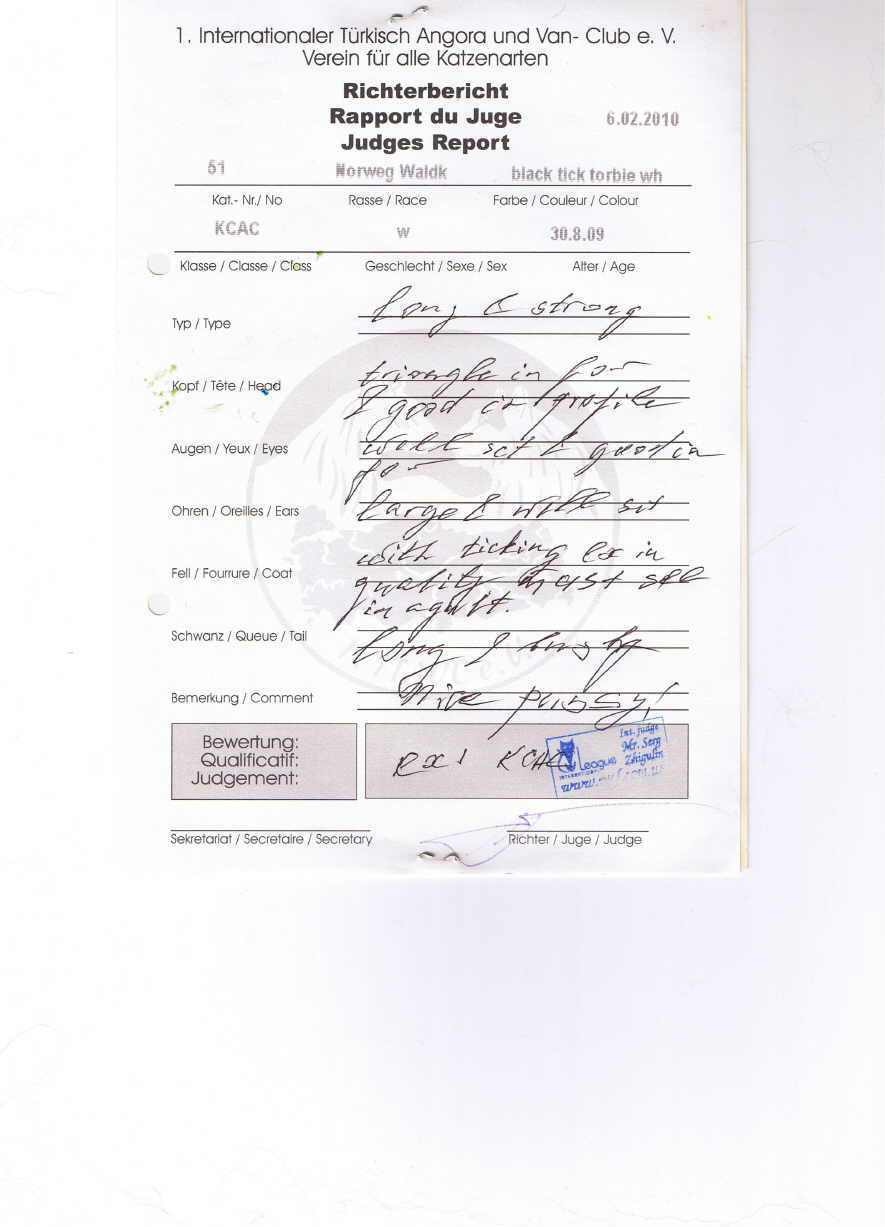 1. Internationaler Türkisch Angora und Van- Club e. V.
Verein für alle Katzenarten
Richterbericht
Rapport du Juge
6.02.2010
Judges Report
51 Norweg Waldk black tick torbie wh
Kat.- Nr./ No Rasse / Race Farbe / Couleur / Colour
KCAC W 30.8.09
Klasse / Classe / Class Geschlecht / Sexe / Sex Alter / Age
Typ / Type long & strong
Kopf / Tête / Head triangle in for
& good in profile
Augen / Yeux / Eyes well set & good in
for
Ohren / Oreilles / Ears large & well set
with ticking ex in
Fell / Fourrure / Coat quality must see
in
Schwanz / Queue / Tail long & bushy
Bemerkung / Comment Nice pussy!
Bewertung:
Qualificatif:
Judgement:
Ex 1 KCAC
Int. Judge
Mr. Serg
Zhigulin
League
INTERNATIONAL
Sekretariat / Secretaire / Secretary Richter / Juge / Judge